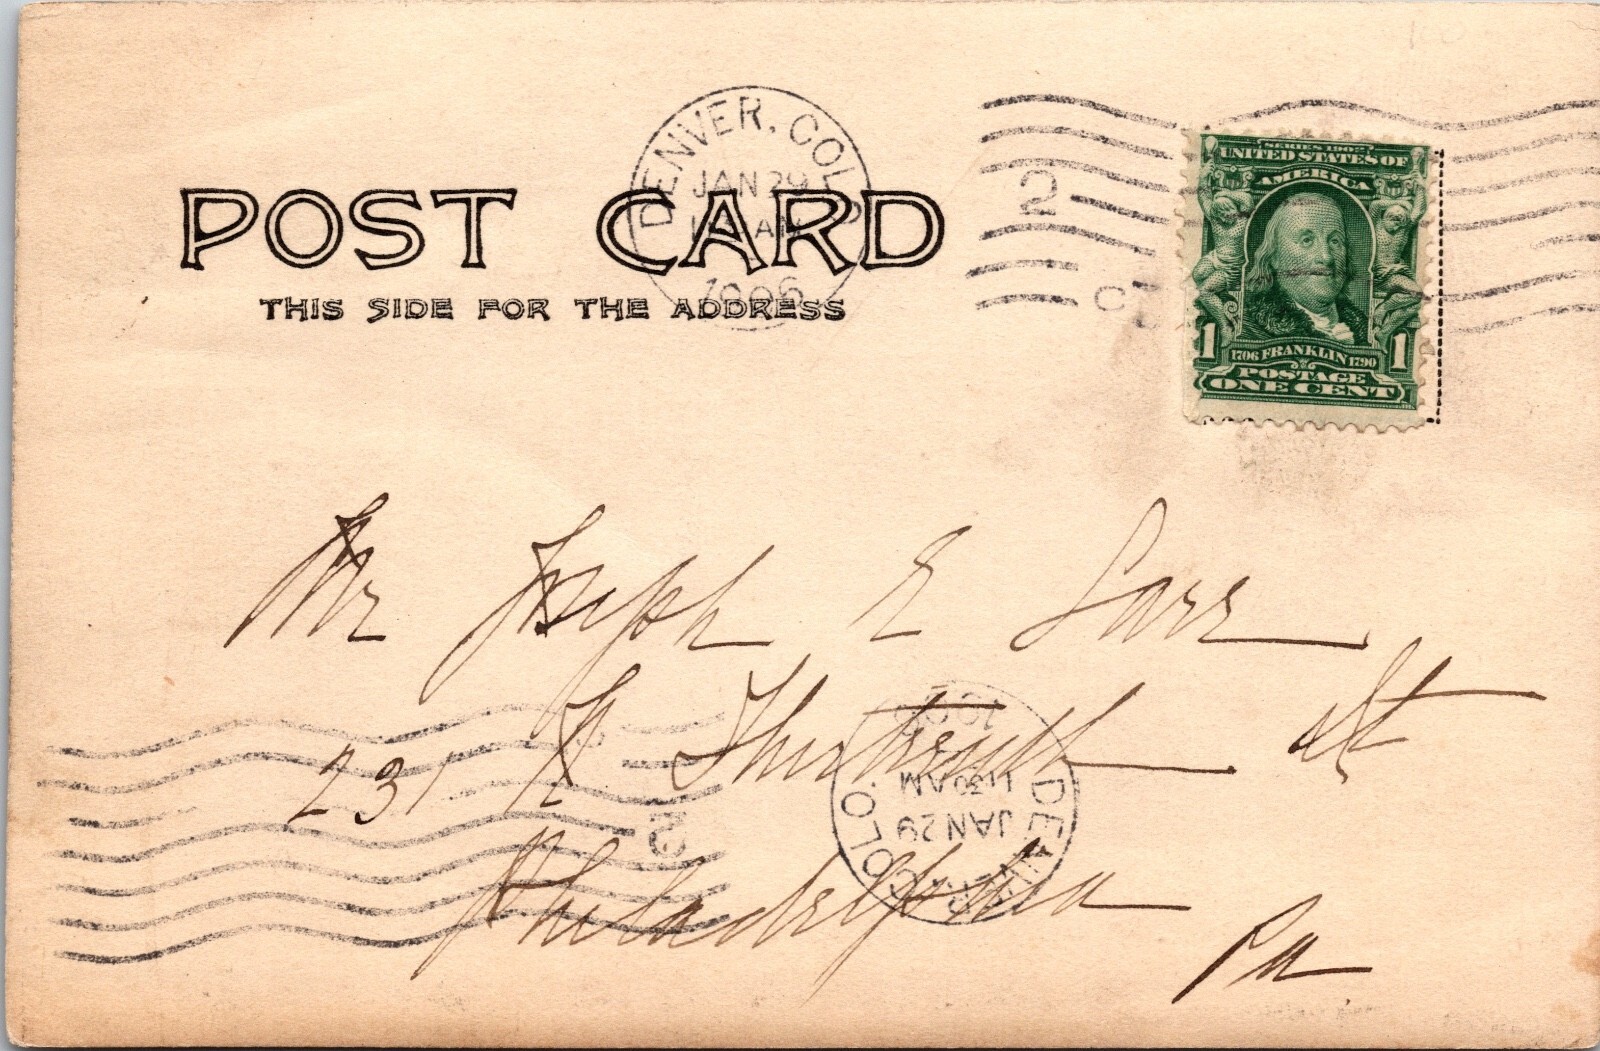 DENVER, COLO
JAN 29
AM
1906
2
POST CARD
THIS SIDE FOR THE ADDRESS
SERIES 1902
UNITED STATES OF
AMERICA
1 1
1706 FRANKLIN 1790
POSTAGE
ONE CENT
Mr Joseph E Sarr
231 N Thirteenth St
Philadelphia
Pa
DENVER, COLO.
JAN 29
1130 AM
1906
2